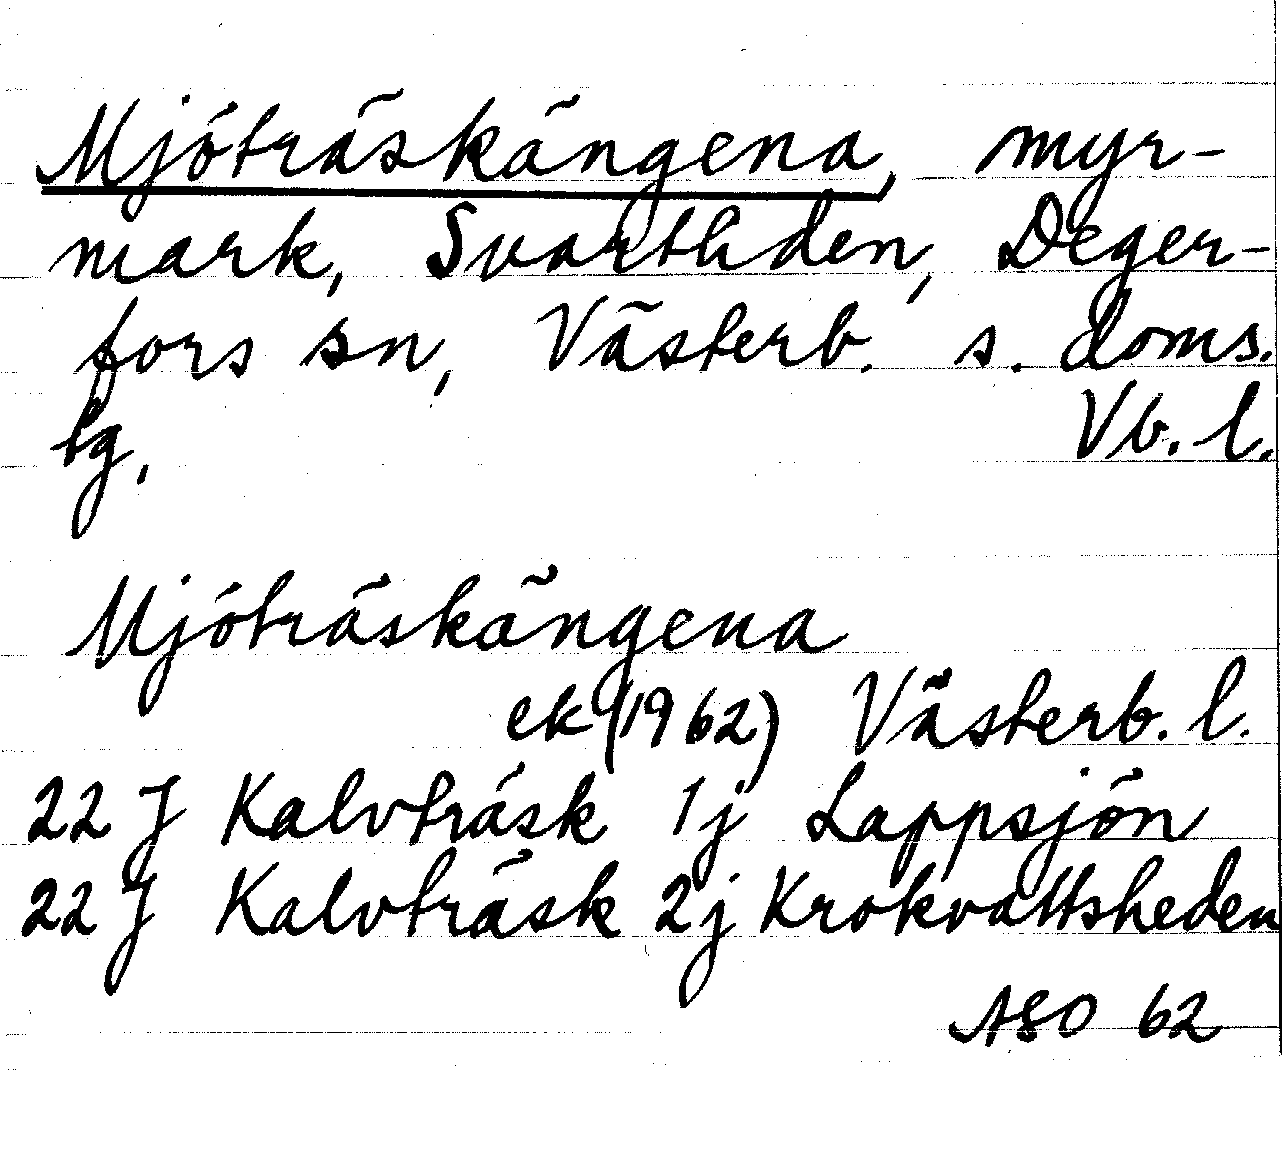 Mjöträskängena, myr-
mark, Svartliden, Deger-
fors sn, Västerb. s. doms.
tg. Vb. l.
Mjöträskängena
ek (1962) Västerb. l.
22 J Kalvträsk 1j Lappsjön
22 J Kalvträsk 2j Krokvattsheden
ASO 62